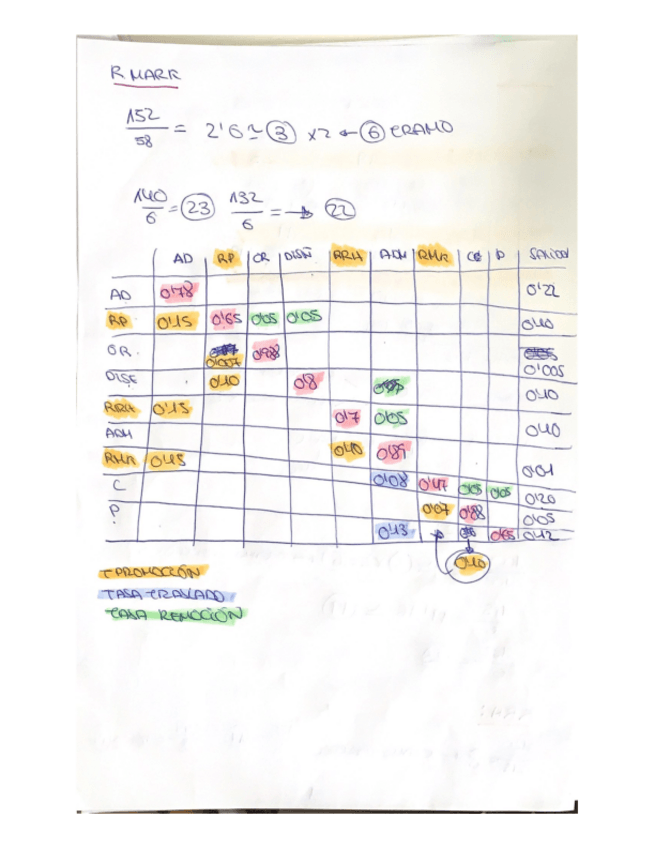 R MARR
152/58 = 2'6 ≃ 3 x2 ← 6 TRAMO
140/6 = 23 132/6 = → 22
AD RP CR DISÑ RRH ADM RMR C P SALIDAS
AD 0'78 0'22
RP 0'15 0'65 0'05 0'05 0'10
CR 0'007 0'988 0'005
DISE 0'10 0'8 0'10
RRH 0'15 0'7 0'05 0'10
ADM 0'10 0'89 0'01
RMR 0'15 0'08 0'47 0'05 0'05 0'20
C 0'07 0'88 0'05
P 0'13 0'65 0'12
0'10
T PROMOCIÓN
TASA TRASLADO
TASA REMOCIÓN